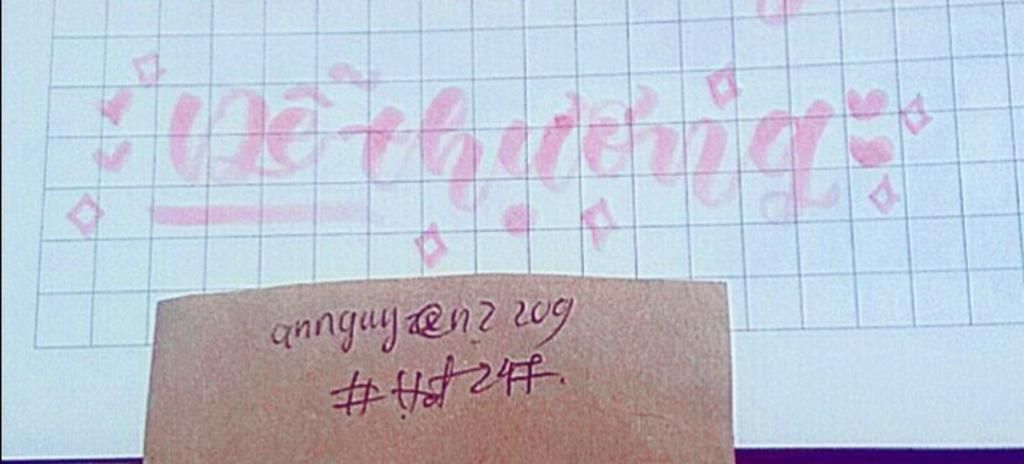 Dễ thương
annguyen2209
#Hot24#.